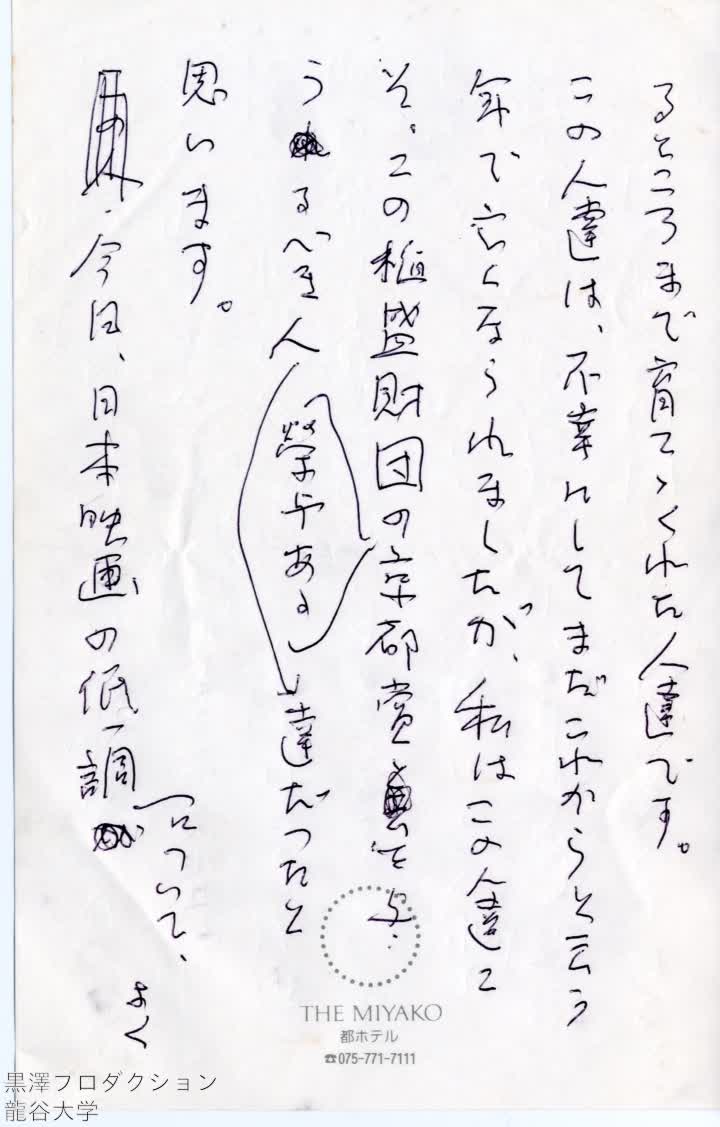 るところまで育てゝくれた人達です。
この人達は、不幸にしてまだこれからと云う
年で亡くなられましたが、私はこの人達こ
そ、この稲盛財団の京都賞を与
うるべき人
栄与ある
達だったと
思います。
今日、日本映画の低調
について、
よく
THE MIYAKO
都ホテル
☎075-771-7111
黒澤プロダクション
龍谷大学